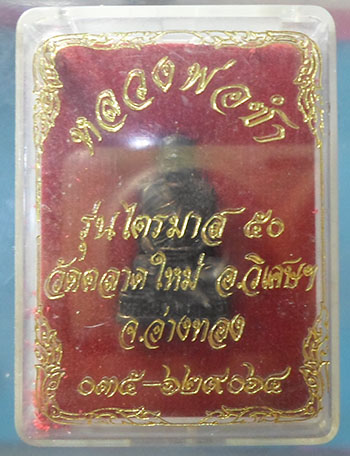 หลวงพ่อซำ
รุ่นไตรมาส ๕๐
วัดตลาดใหม่ อ.วิเศษฯ
จ.อ่างทอง
๐๓๕-๖๒๙๐๖๔